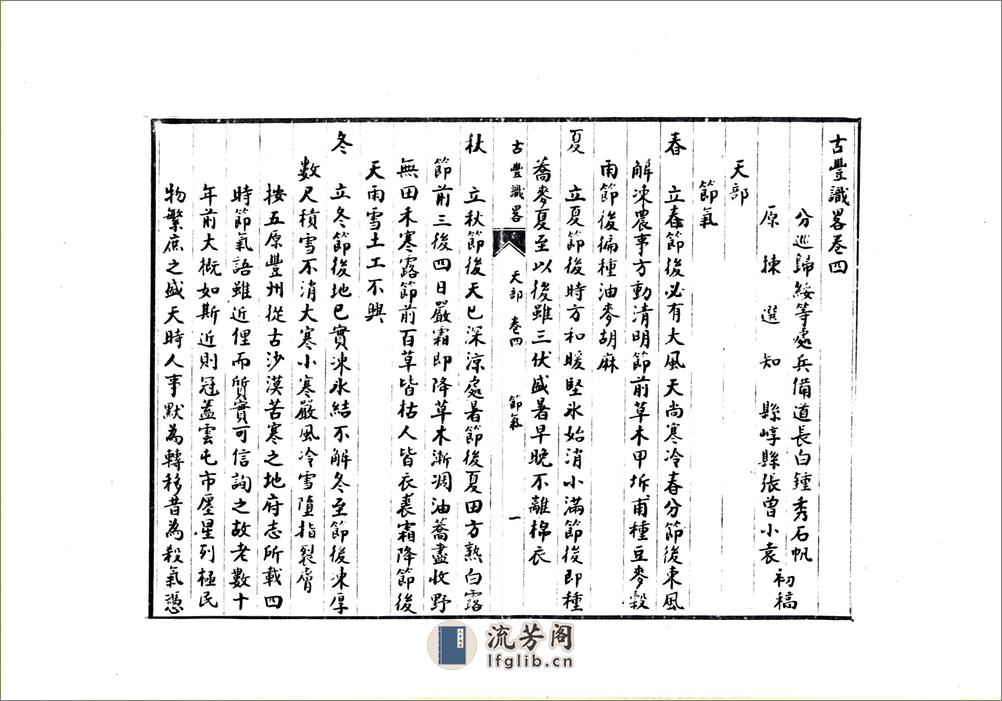 古豐識畧卷四
分巡歸綏等處兵備道長白鍾秀石帆
原揀選知縣崞縣張曾小袁
初稿
天部
節氣
春 立春節後必有大風天尚寒冷春分節後東風
解凍農事方動清明節前草木甲坼甫種豆麥穀
雨節後徧種油麥胡麻
夏 立夏節後時方和暖堅氷始消小滿節後即種
蕎麥夏至以後雖三伏盛暑早晚不離棉衣
古豐識畧 天部 卷四 節氣 一
秋 立秋節後天已深涼處暑節後夏田方熟白露
節前三後四日嚴霜即降草木漸凋油蕎盡收野
無田禾寒露節前百草皆枯人皆衣裘霜降節後
天雨雪土工不興
冬 立冬節後地已實凍氷結不解冬至節後凍厚
數尺積雪不消大寒小寒嚴風冷雪墮指裂膚
按五原豐州從古沙漠苦寒之地府志所載四
時節氣語雖近俚而質實可信詢之故老數十
年前大概如斯近則冠蓋雲屯市廛星列極民
物繁庶之盛天時人事默為轉移昔為殺氣憑
流芳阁
lfglib.cn